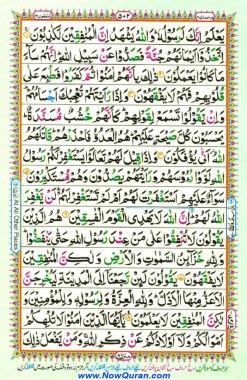 يَعْلَمُ اِنَّكَ لَرَسُوْلُهٗ ؕ وَاللّٰهُ يَشْهَدُ اِنَّ الْمُنٰفِقِيْنَ لَكٰذِبُوْنَ
اِتَّخَذُوْۤا اَيْمَانَهُمْ جُنَّةً فَصَدُّوْا عَنْ سَبِيْلِ اللّٰهِ ؕ اِنَّهُمْ سَآءَ
مَا كَانُوْا يَعْمَلُوْنَ ذٰلِكَ بِاَنَّهُمْ اٰمَنُوْا ثُمَّ كَفَرُوْا فَطُبِعَ عَلٰى
قُلُوْبِهِمْ فَهُمْ لَا يَفْقَهُوْنَ وَاِذَا رَاَيْتَهُمْ تُعْجِبُكَ اَجْسَامُهُمْ
وَاِنْ يَّقُوْلُوْا تَسْمَعْ لِقَوْلِهِمْ ؕ كَاَنَّهُمْ خُشُبٌ مُّسَنَّدَةٌ
يَحْسَبُوْنَ كُلَّ صَيْحَةٍ عَلَيْهِمْ ؕ هُمُ الْعَدُوُّ فَاحْذَرْهُمْ ؕ قَاتَلَهُمُ
اللّٰهُ اَنّٰى يُؤْفَكُوْنَ وَاِذَا قِيْلَ لَهُمْ تَعَالَوْا يَسْتَغْفِرْ لَكُمْ رَسُوْلُ
اللّٰهِ لَوَّوْا رُءُوْسَهُمْ وَرَاَيْتَهُمْ يَصُدُّوْنَ وَهُمْ مُّسْتَكْبِرُوْنَ
سَوَآءٌ عَلَيْهِمْ اَسْتَغْفَرْتَ لَهُمْ اَمْ لَمْ تَسْتَغْفِرْ لَهُمْ ؕ لَنْ يَّغْفِرَ
اللّٰهُ لَهُمْ ؕ اِنَّ اللّٰهَ لَا يَهْدِى الْقَوْمَ الْفٰسِقِيْنَ هُمُ الَّذِيْنَ
يَقُوْلُوْنَ لَا تُنْفِقُوْا عَلٰى مَنْ عِنْدَ رَسُوْلِ اللّٰهِ حَتّٰى يَنْفَضُّوْا
وَلِلّٰهِ خَزَآئِنُ السَّمٰوٰتِ وَالْاَرْضِ وَلٰكِنَّ الْمُنٰفِقِيْنَ
لَا يَفْقَهُوْنَ يَقُوْلُوْنَ لَئِنْ رَّجَعْنَاۤ اِلَى الْمَدِيْنَةِ لَيُخْرِجَنَّ
الْاَعَزُّ مِنْهَا الْاَذَلَّ ؕ وَلِلّٰهِ الْعِزَّةُ وَلِرَسُوْلِهٖ وَلِلْمُؤْمِنِيْنَ
وَلٰكِنَّ الْمُنٰفِقِيْنَ لَا يَعْلَمُوْنَ يٰۤاَيُّهَا الَّذِيْنَ اٰمَنُوْا لَا تُلْهِكُمْ
اَمْوَالُكُمْ وَلَاۤ اَوْلَادُكُمْ عَنْ ذِكْرِ اللّٰهِ ۚ وَمَنْ يَّفْعَلْ ذٰلِكَ
www.NowQuran.com